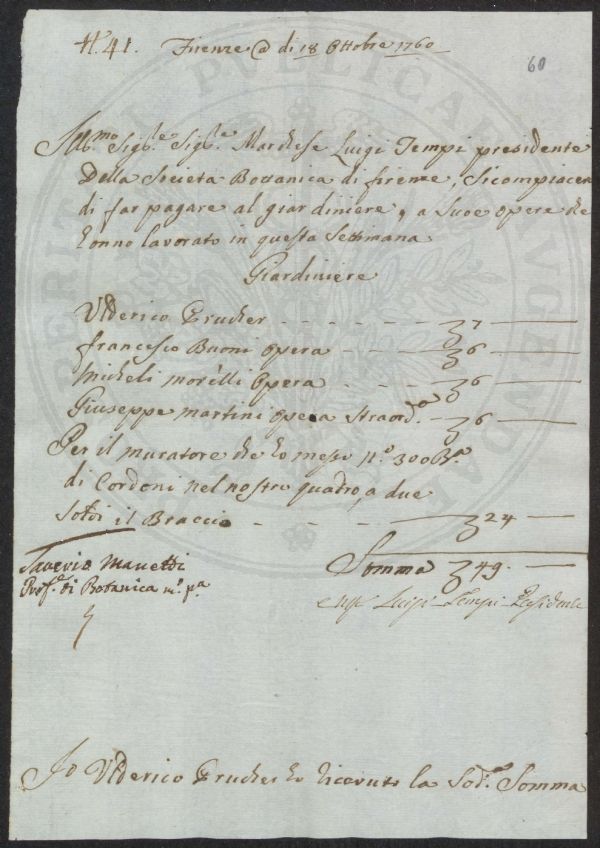 N.° 41. Firenze @ di 18 Ottobre 1760
60
Ill.mo Sig.re Sig.re Marchese Luigi Tempi presidente
Della Società Bottanica di firenze, Sicompiacera
di far pagare al giardiniere, e a Suoe opere che
hònno lavorato in questa Settimana
Giardiniere
Ulderico Prucher - - - - - 7
francesco Buoni opera - - - 6
Micheli morèlli opera - - - - 6
Giuseppe martini opera Straord.a - 6
Per il muratore che hò messo n.° 300 B.a
di Cordoni nel nostro quadro, a due
Soldi il Braccio - - - 24
Saverio Manetti
Prof.e di Botanica m.o p.a
Somma 49. -
Luigi Tempi Presidente
Io Ulderico Prucher ho ricevuto la Sod.a Somma
PERITI PVBLICAE AVGENDAE